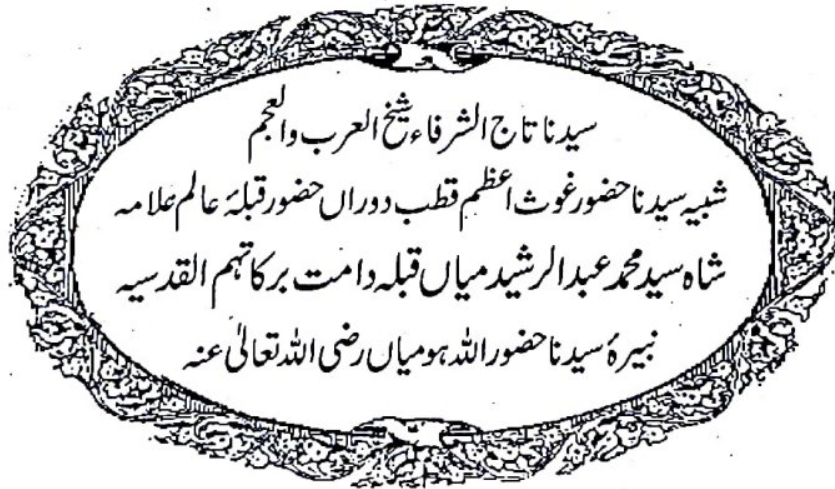 سیدنا تاج الشرفاء شیخ العرب والعجم
شبیہ سیدنا حضور غوث اعظم قطب دوراں حضور قبلۂ عالم علامہ
شاہ سید محمد عبد الرشید میاں قبلہ دامت برکاتہم القدسیہ
نبیرۂ سیدنا حضور اللہ ہو میاں رضی اللہ تعالیٰ عنہ